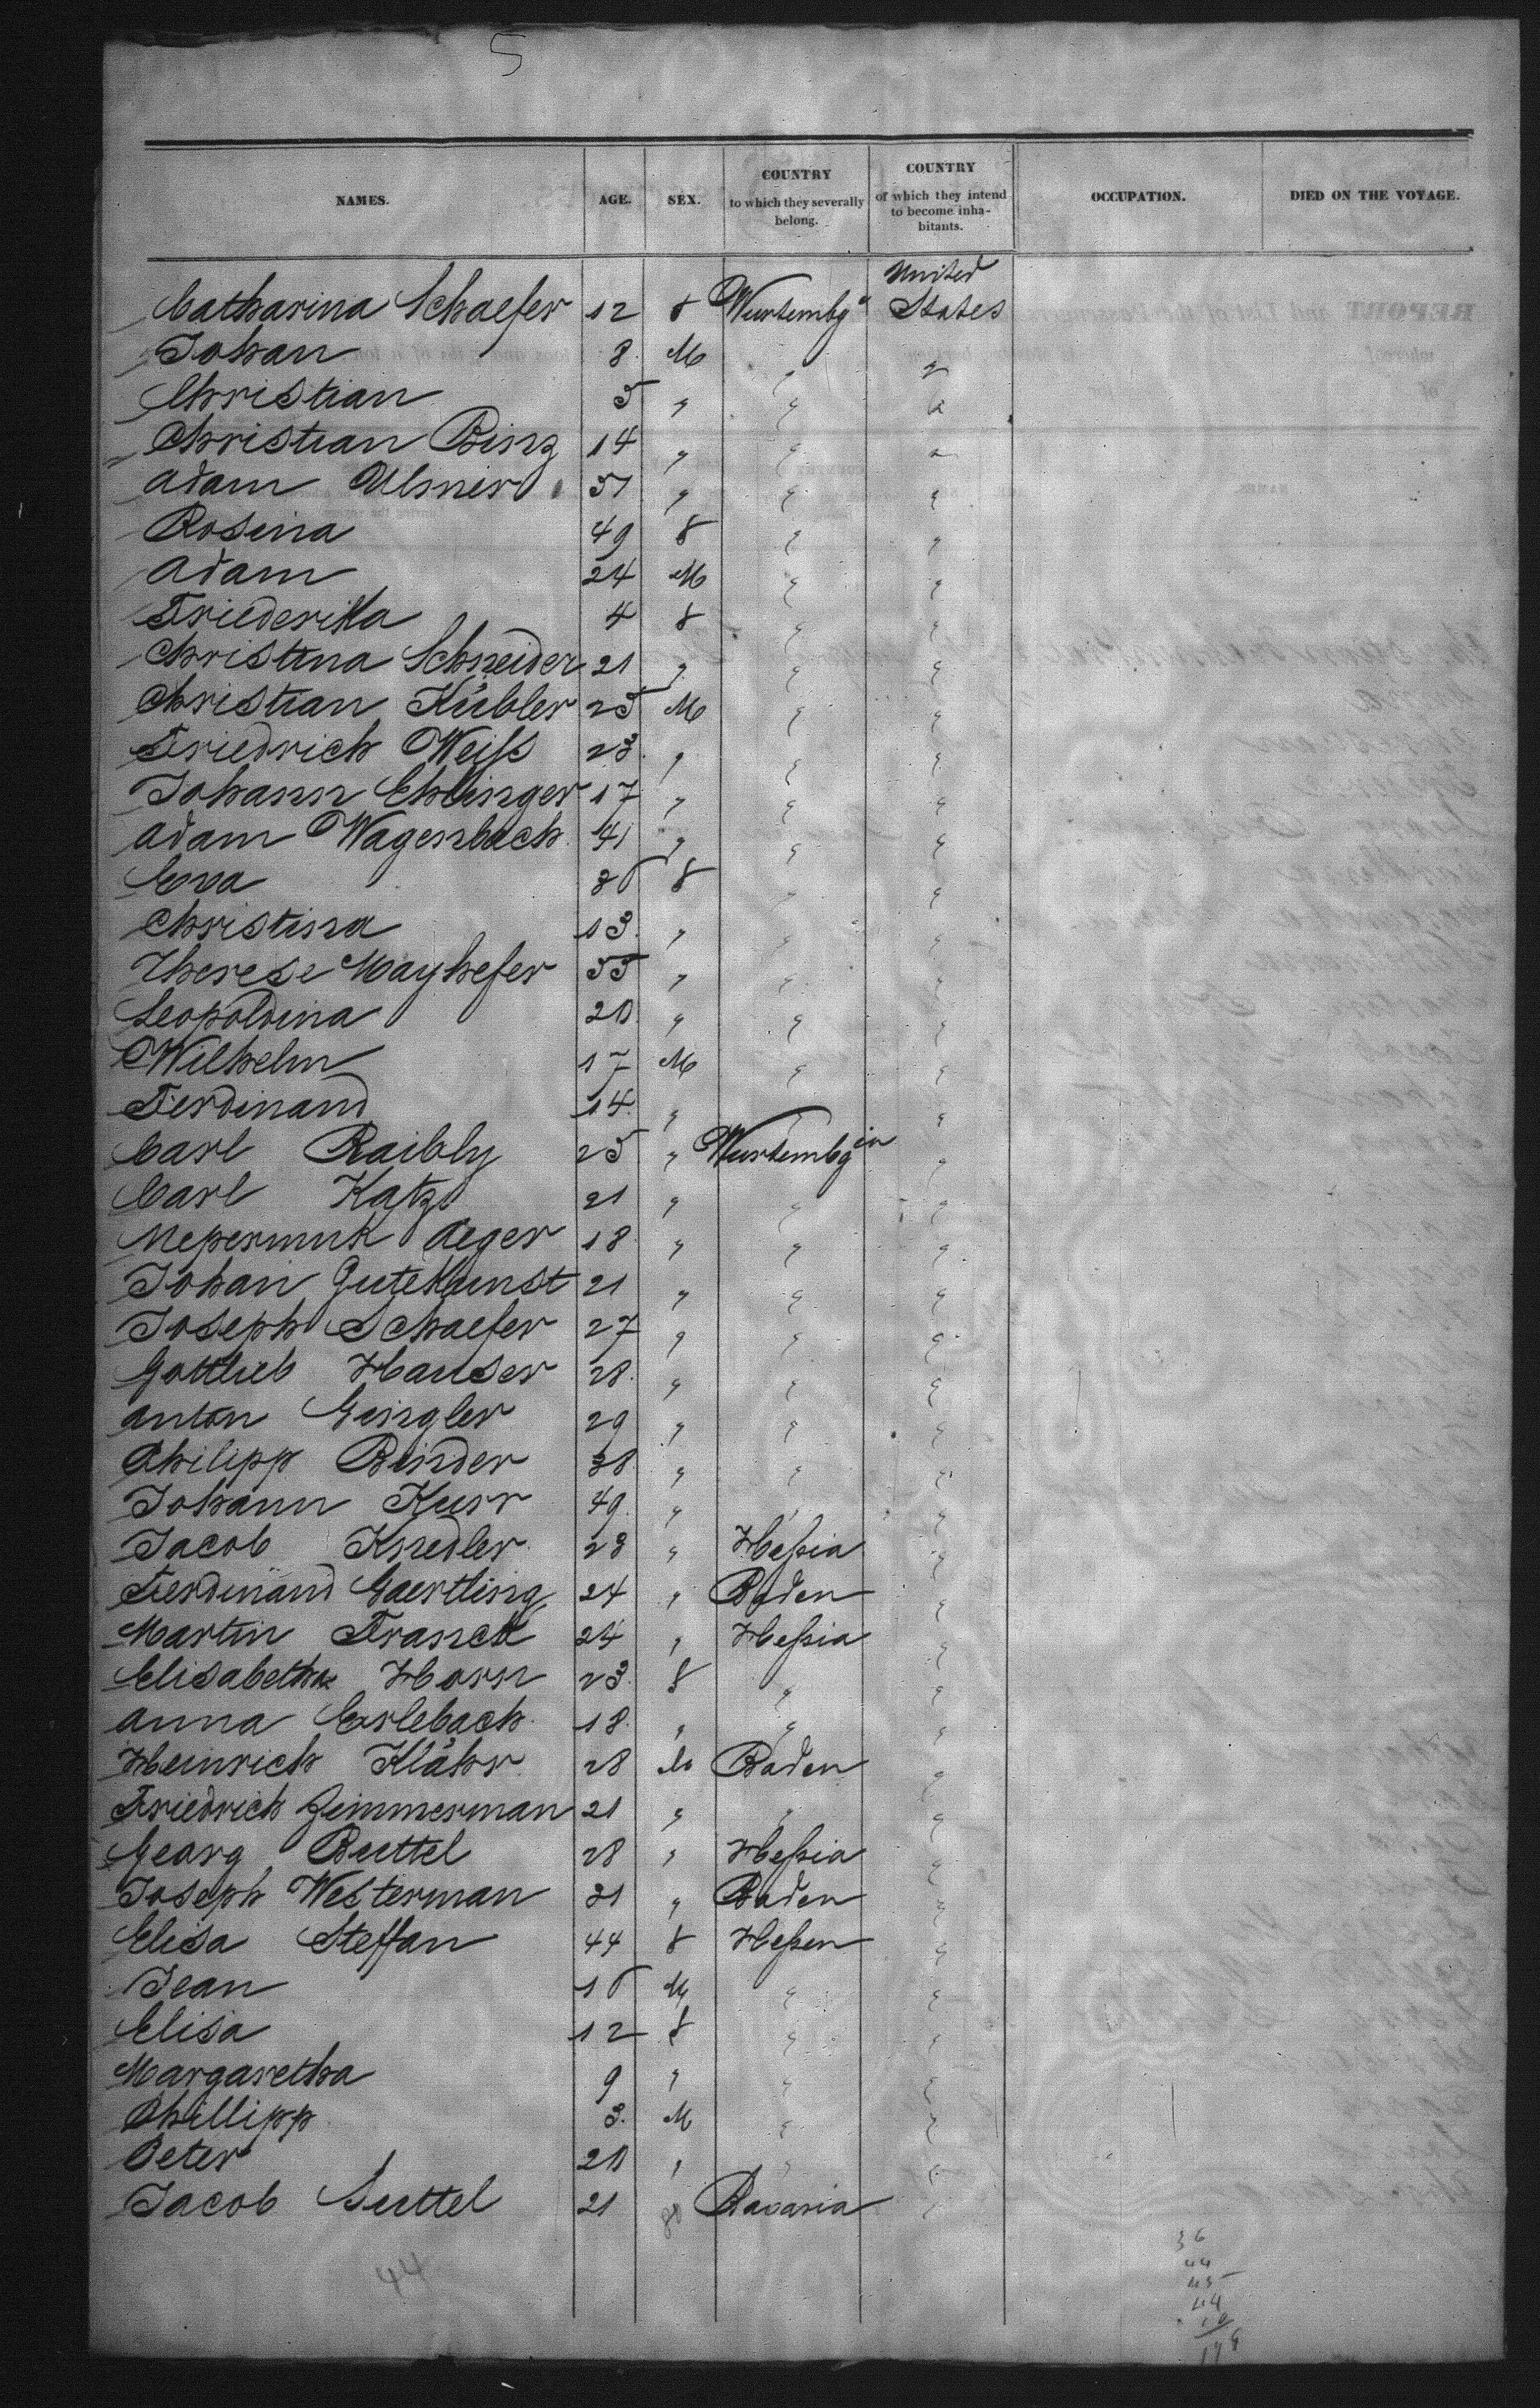 5
NAMES. AGE. SEX. COUNTRY to which they severally belong. COUNTRY of which they intend to become inhabitants. OCCUPATION. DIED ON THE VOYAGE.
United
Catharina Schaefer 12 f Wurtembg States
Johan 8 M " "
Christian 5 " " "
Christian Binz 14 " " "
Adam Ulmer 51 " " "
Rosina 49 f " "
Adam 24 M " "
Friederika 4 f " "
Christina Schneider 21 " " "
Christian Kübler 25 M " "
Friedrich Weiss 23 " " "
Johann Ehlinger 17 " " "
Adam Wagenbach 41 " " "
Eva f " "
Christina 13 " " "
Therese Mayhefer 55 " " "
Leopoldina 20 " " "
Wilhelm 17 M " "
Ferdinand 14 " " "
Carl Raibly 25 " Wurtembg "
Carl Katz 21 " " "
Nepermuk Aeger 18 " " "
Johan Gutekunst 21 " " "
Joseph Schaefer 27 " " "
Gottlieb Hauser 28 " " "
Anton Gengler 29 " " "
Philipp Binder 38 " " "
Johann Kurr 49 " " "
Jacob Knedler 23 " Hessia "
Ferdinand Gaertling 24 " Baden "
Martin Franck 24 " Hessia "
Elisabetha Horn 23 f " "
Anna Erlebach 18 " " "
Heinrich Klähr 28 M Baden "
Friedrich Zimmerman 21 " " "
Georg Buttel 28 " Hessia "
Joseph Westerman 31 " Baden "
Elisa Steffan 44 f Hessen "
Jean M " "
Elisa 12 f " "
Margaretha 9 " " "
Phillipp 3 M " "
Peter 20 " " "
Jacob Suttel 21 Bavaria "
44
36
44
45
44